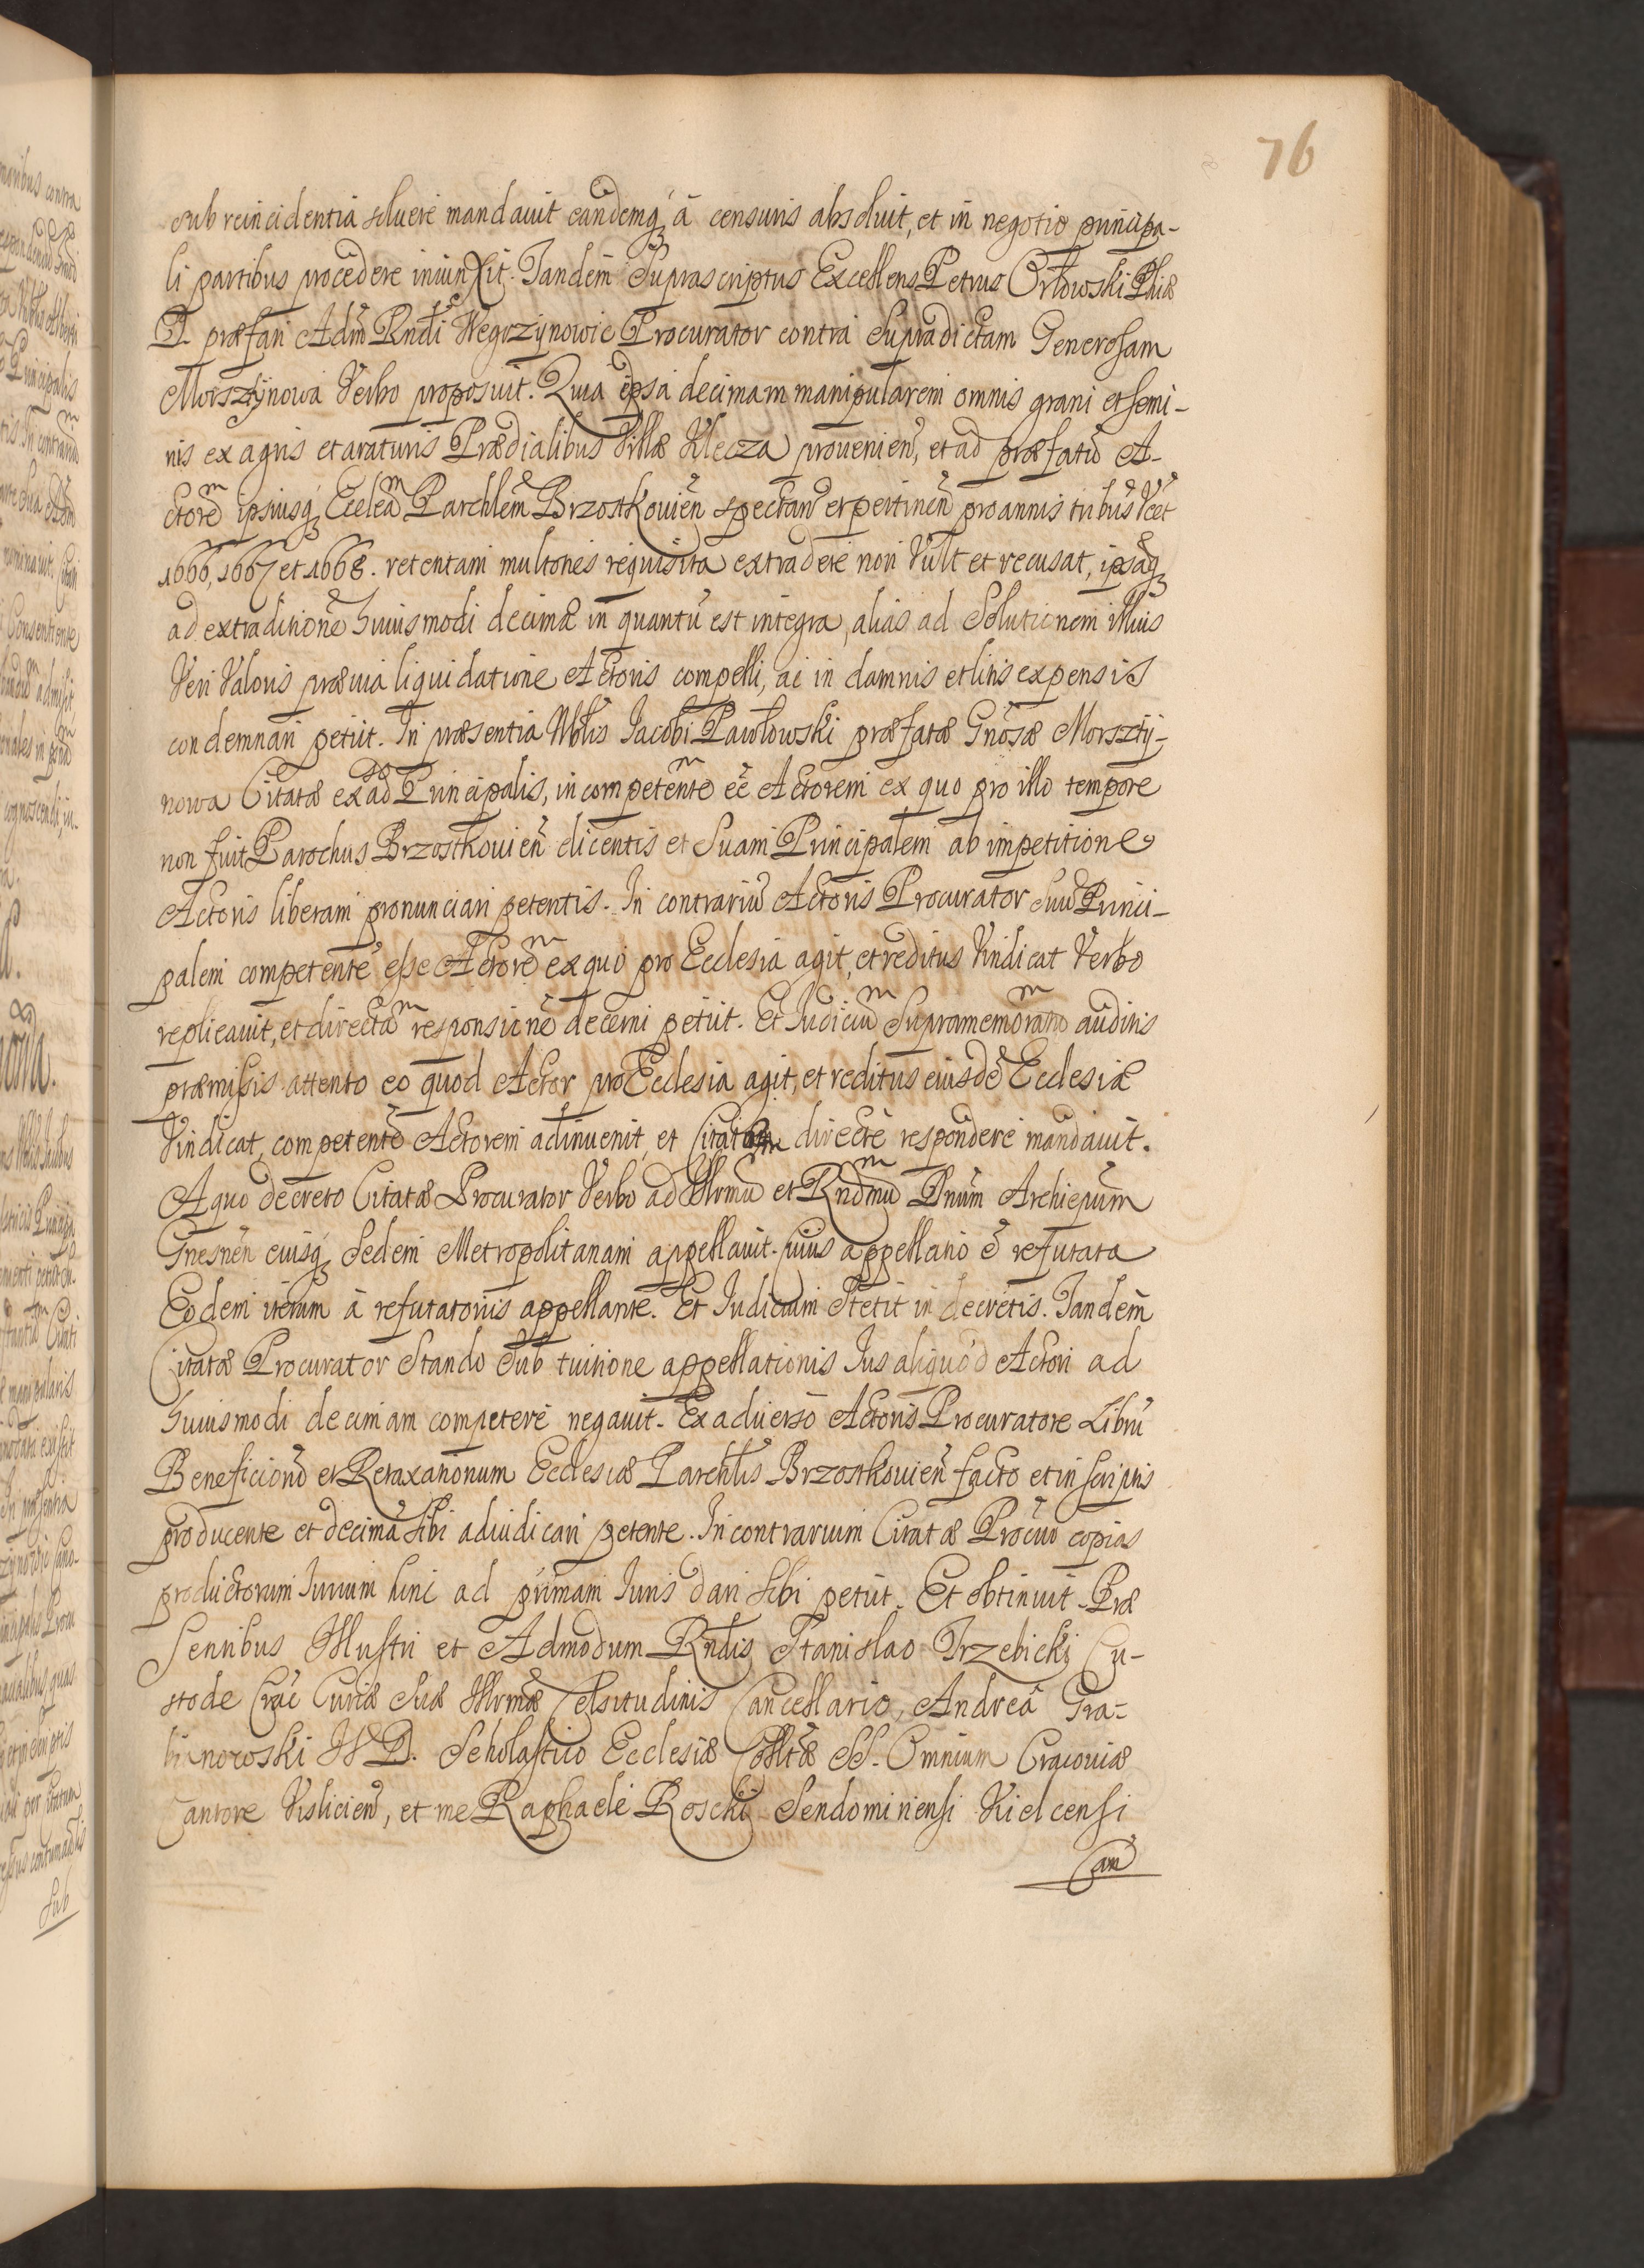 76
sub reincidentia soluere mandauit eandemq₃ à censuris absoluit, et in negotio principa-
li partibus procedere iniunxit. Tandem Suprascriptus Excellens Petrus Orłowski Phiæ
D. præfati Adm̃ Rndi Węgrzynowic Procurator contra Supradictam Generosam
Morsztynowa Verbo proposuit. Quia ipsa decimam manipularem omnis grani et semi-
nis ex agris et araturis Prædialibus Villæ Klecza prouenień, et ad præfatū A-
ctorem ipsiusq₃ Eccleam Parchlem Brzostkouień spectań et pertineń pro annis tribus Vcet
1666, 1667 et 1668. retentam multories requisita extradere non Vult et recusat, ipsaq₃
ad extraditionē huiusmodi decimæ in quantū est integra, alias ad Solutionem illius
Veri Valoris præuia liquidatione Actoris compelli, ac in damnis et litis expensis
condemnari petiit. In præsentia Nblis Jacobi Pawłowski præfatæ Gnosæ Morszty-
nowa Citatæ ex ad Principalis, incompetentem eē Actorem ex quo pro illo tempore
non fuit Parochus Brzostkouień dicentis et Suam Principalem ab impetitione
Actoris liberam pronunciari petentis. In contrariū Actoris Procurator suū Princi-
palem competentē esse Actorem ex quo pro Ecclesia agit, et reditus Vindicat Verbo
replicauit, et directam responsionē decerni petiit. Et Iudicium Supramemoratum auditis
præmissis attento eo quod Actor pro Ecclesia agit, et reditus eiusdē Ecclesiæ
Vindicat, competentē Actorem adinuenit, et Citatam directe respondere mandauit.
A quo decreto Citatæ Procurator Verbo ad Illrmū et Rndmum Dnum Archiepum
Gnesnen eiusq₃ Sedem Metropolitanam appellauit. cuius appellatio ē refutata
Eodem iterum à refutatorijs appellante. Et Iudicium Stetit in decretis. Tandem
Citatæ Procurator Stando Sub tuitione appellationis Ius aliquod Actori ad
huiusmodi decimam competere negauit. Ex aduerso Actoris Procuratore Librū
Beneficiorū et Retaxationum Ecclesiæ Parchlis Brzostkouień facto et in scriptis
producente et decimā sibi adiudicari petente. In contrarium Citatæ Procur copias
productorum Iurium hinc ad primam Iuris dari sibi petiit. Et obtinuit. Præ
Sentibus Illustri et Admodum Rndis Stanislao Trzebicki Cu-
stode Crac Curiæ Suæ Illrmæ Celsitudinis Cancellario, Andreâ Gra-
bianowski I V D. Scholastico Ecclesiæ Collтæ SS. Omnium Cracouiæ
Cantore Vislicień, et me Raphaele Roscki Sendomiriensi Kielcensi
Can